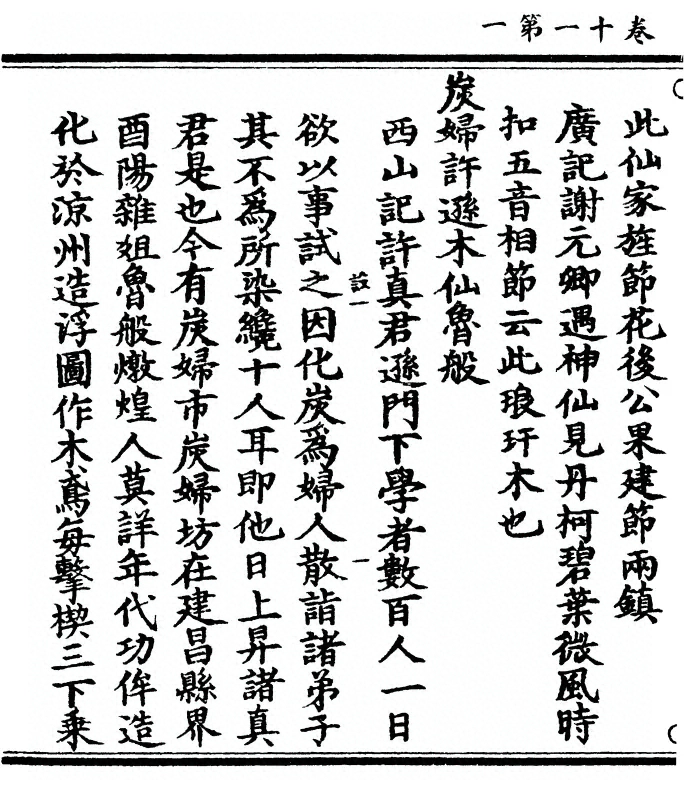 卷十一第一
此仙家旌節花後公果建節兩鎮
廣記謝元卿遇神仙見丹柯碧葉微風時
扣五音相節云此琅玕木也
炭婦許遜木仙魯般
西山記許真君遜門下學者數百人一日
欲以事試之因化炭爲婦人散詣諸弟子
其不爲所染纔十人耳即他日上昇諸真
君是也今有炭婦市炭婦坊在建昌縣界
酉陽雜俎魯般燉煌人莫詳年代功侔造
化於涼州造浮圖作木鳶每擊楔三下乘